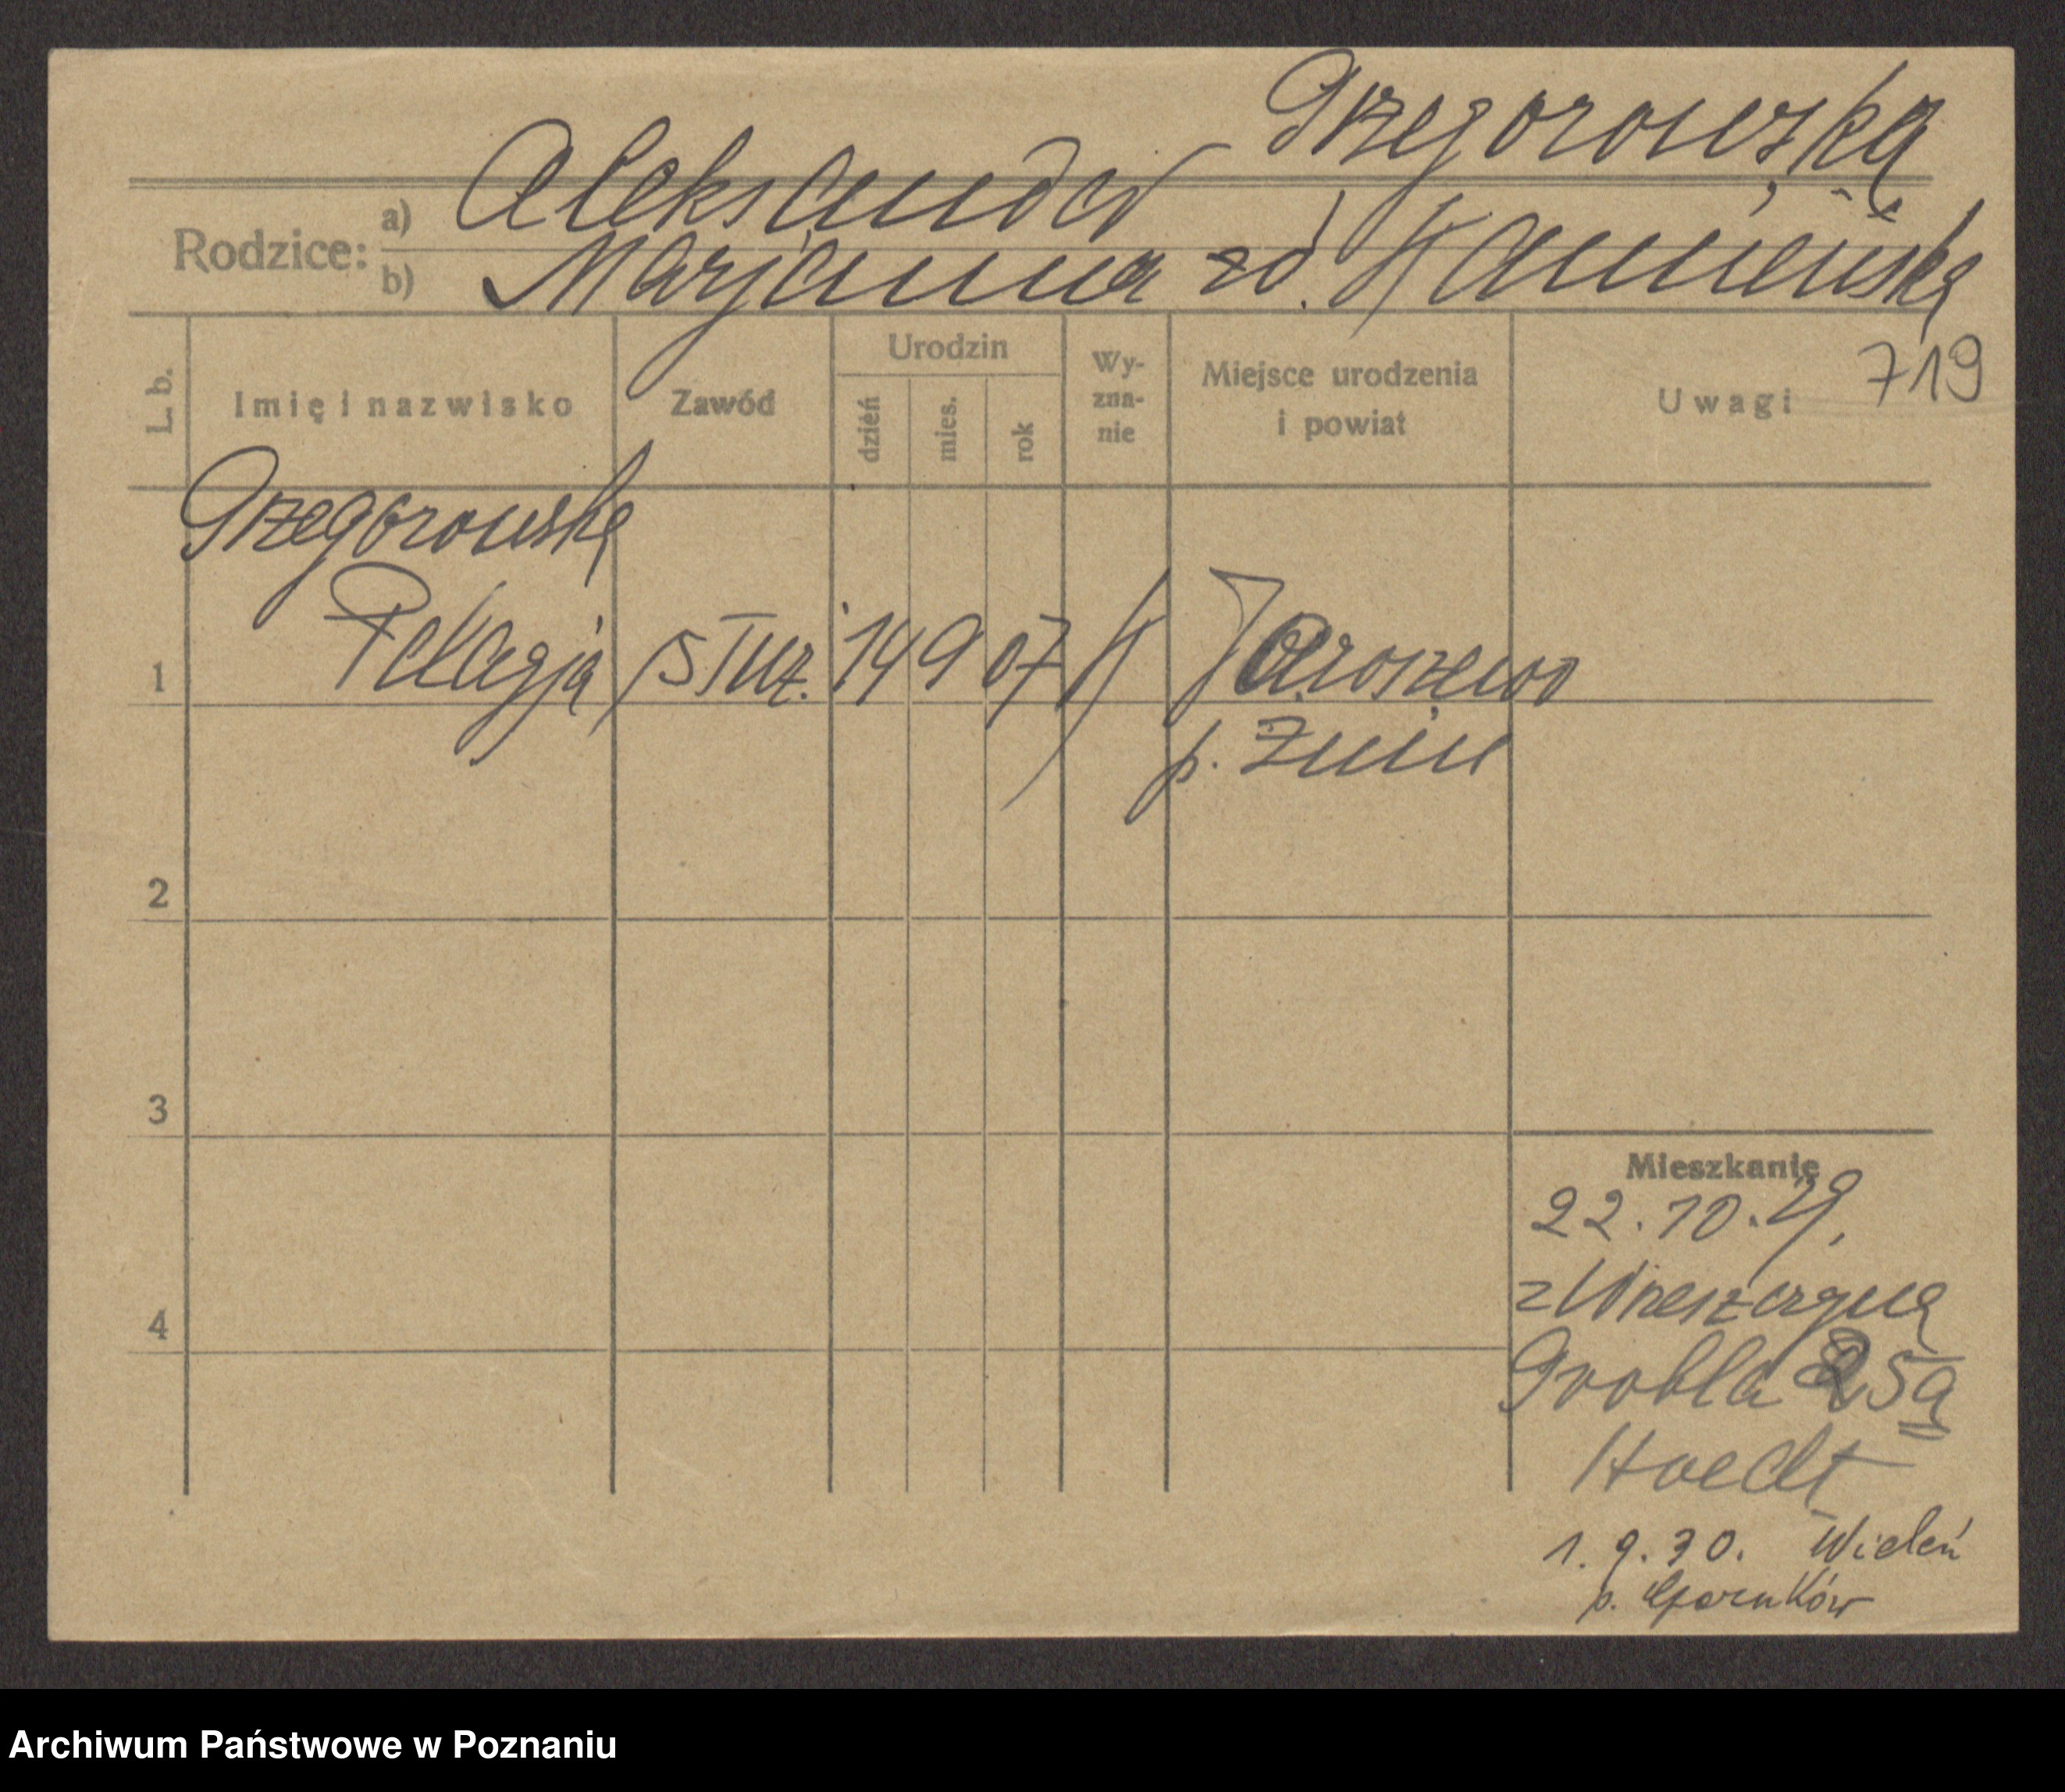 Grzegorowska
Rodzice: a) Aleksander
b) Marjanna zd. Kamieńska
719
L. b. Imię i nazwisko Zawód Urodzin dzień mies. rok Wy-zna-nie Miejsce urodzenia i powiat Uwagi
Grzegorowska
1 Pelagja służ. 14 9 07 k Jaroszewo
p. Żnin
2
3
Mieszkanie
22.10.29.
4
Grobla 25a
1. 9. 30. Wieleń
p. Czarnków
Archiwum Państwowe w Poznaniu